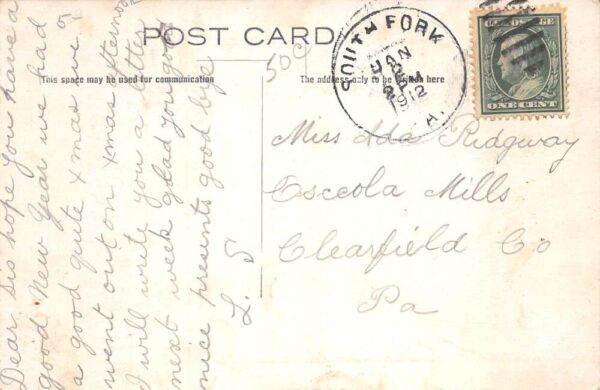 POST CARD
This space may be used for communication
The address only to be here
50¢
SOUTH FORK
JAN
1912
A.
U.S. POSTAGE
ONE CENT
Miss Ada Ridgway
Osceola Mills
Clearfield Co
Pa
Dear sis hope you have a
good New Year we had
a good quite xmas have
went out on xmas afternoon
I will write you a letter
next week glad you got
nice presents good bye
L. S